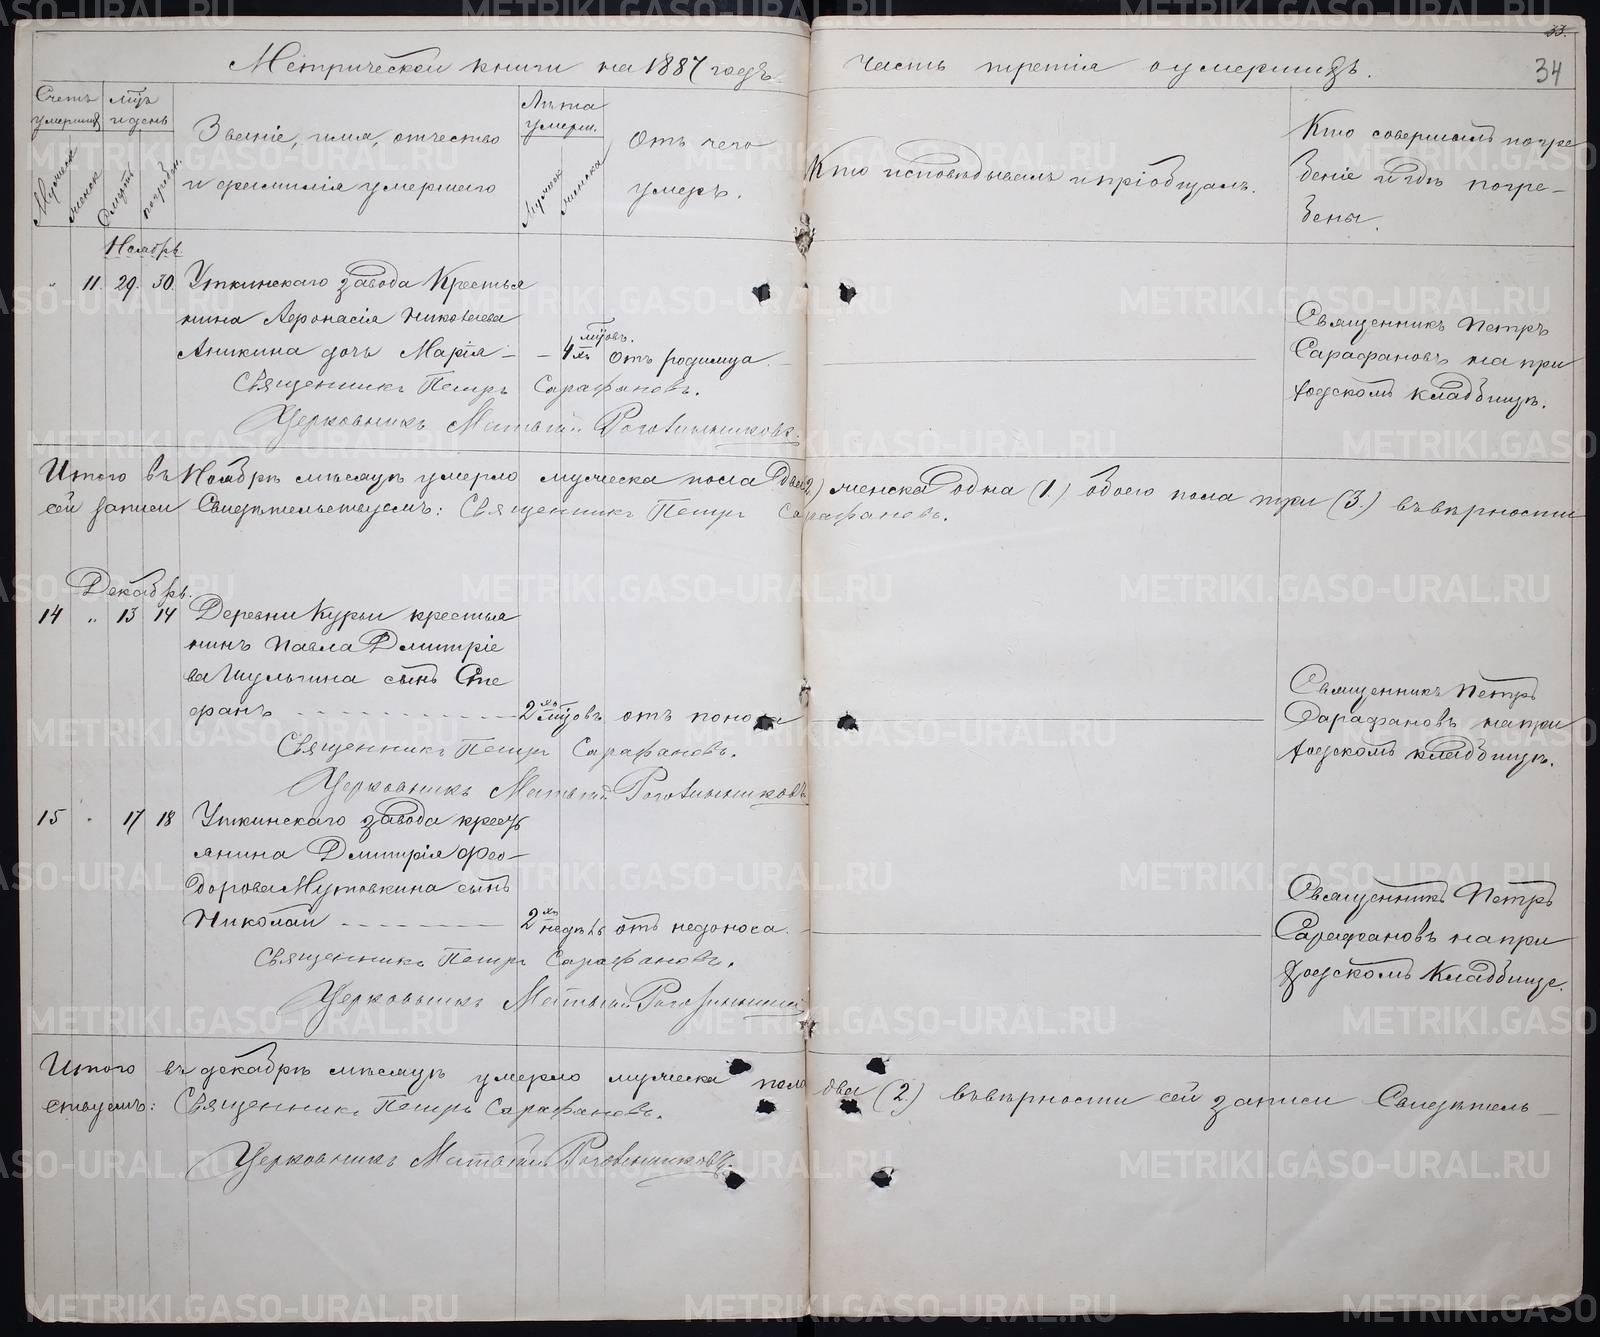 33.
34
Метрической книги на 1887 годъ часть третія о умершихъ.
Счетъ умершихъ
Мѣц. и день
Звание, имя, отчество и фамилія умершаго
Лѣта умерш.
Отъ чего умеръ.
Кто исповѣдывалъ и пріобщалъ.
Кто совершалъ погребеніе и гдѣ погребены.
Мужеск. женск. смерти погребен.
Мужеск. женска
Ноябрь
" 11. 29. 30. Уткинскаго завода Крестья
нина Афонасія Николаева
Аникина дочь Марія - - 4хъ мцовъ. Отъ родимца.
Священникъ Петръ
Сарафановъ на при
ходскомъ кладбищѣ.
Священникъ Петръ Сарафановъ.
Церковникъ Матвѣй
Итого въ Ноябрѣ мѣсяцѣ умерло мужеска пола Два (2) женска одна (1.) обоего пола три (3.) въ вѣрности
сей записи Свидѣтельствуемъ: Священникъ Петръ Сарафановъ.
Декабрь.
14 " 13 14 Деревни Курьи крестья
нинъ Павла Дмитріе
ва Шульгина сынъ Сте
фанъ 2хъ мцовъ отъ поноса
Священникъ Петръ
Сарафановъ на при
ходскомъ кладбищѣ.
Священникъ Петръ Сарафановъ.
Церковникъ Матвѣй
15 " 17 18 Уткинскаго завода кресть
янина Дмитрія Фео-
дорова Мутовкина сынъ
Николай 2хъ недѣль отъ недоноса.
Священникъ Петръ
Сарафановъ на при
ходскомъ Кладбище.
Священникъ Петръ Сарафановъ.
Церковникъ Матвѣй
Итого въ декабрѣ мѣсяцѣ умерло мужеска пола два (2) въ вѣрности сей записи Свидѣтель-
ствуемъ: Священникъ Петръ Сарафановъ.
Церковникъ Матвѣй
METRIKI.GASO-URAL.RU